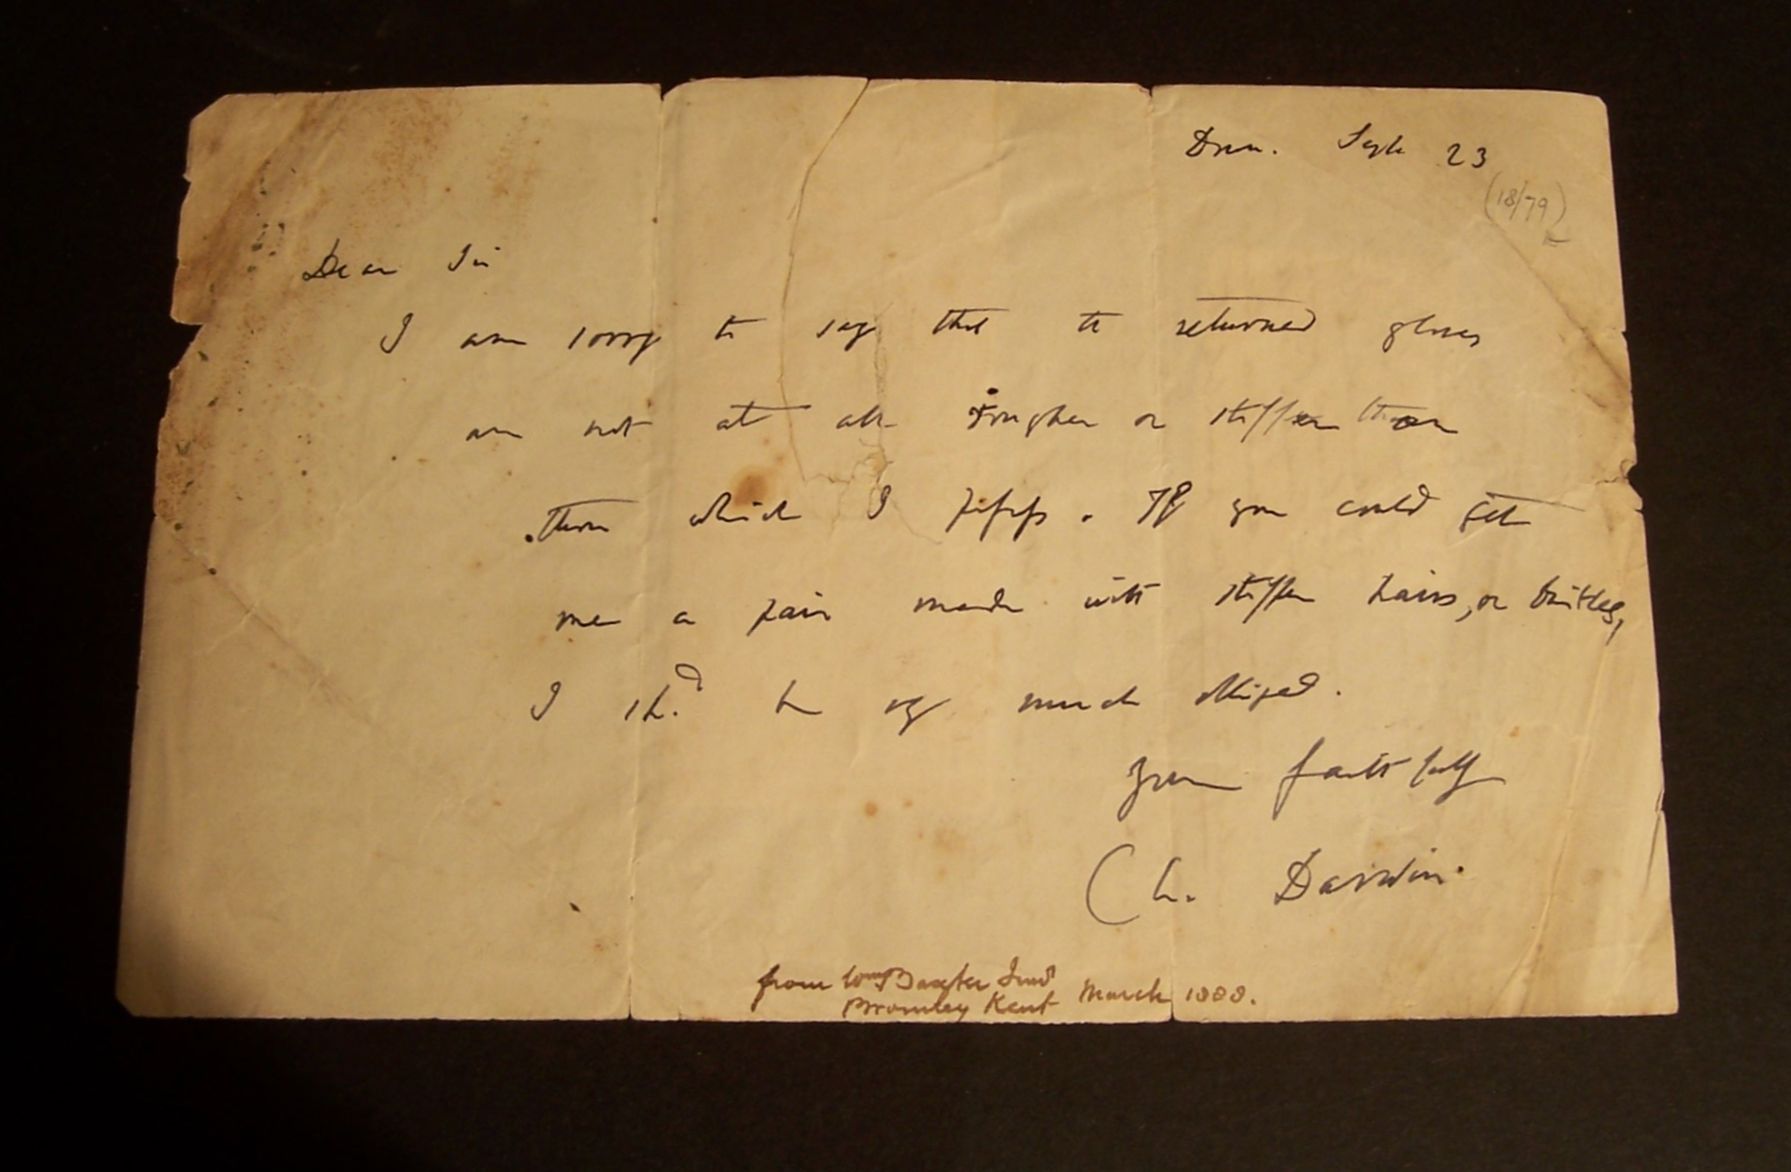 Down. Sept 23
(18/79)
Dear Sir
I am sorry to say that the returned gloves
are not at all rougher or stiffer than
those which I possess. If you could get
me a pair made with stiffer hairs, or bristles,
I shd. be very much obliged.
Yours faithfully
Ch. Darwin.
from Wm Baxter
Bromley Kent March 1888.